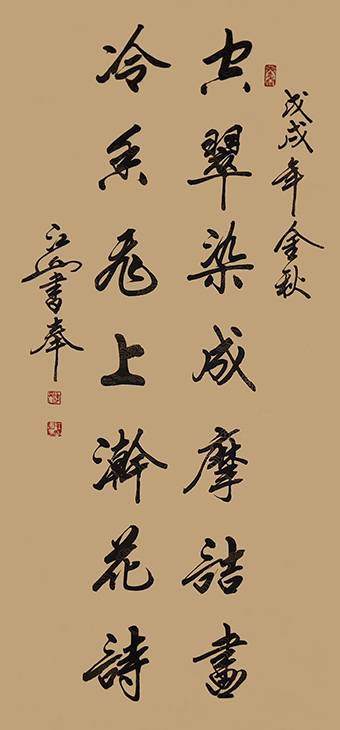 戊戌年金秋
空翠染成摩詰畫
冷香飛上澣花詩
江山書奉